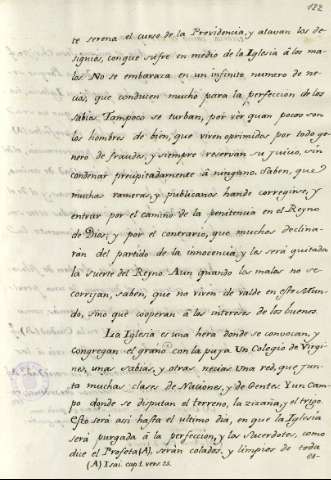 122
te serena el curso de la Providencia, y alavan los de-
signios, conque sufre en medio de la Iglesia â los ma-
los. No se embaraza en un infinito numero de ne-
cias, que conducen mucho para la perfeccion de los
sabios. Tampoco se turban, por ver quan pocos son
los hombres de bien, que viven oprimidos por todo ge-
nero de fraudes, y siempre reservan su juicio, sin
condenar precipitadamente â ninguno. Saben, que
muchas rameras, y publicanos hande corregirse, y
entrar por el camino de la penitencia en el Reyno
de Dios; y por el contrario, que muchos declina-
ran del partido de la innocencia, y les será quitada
la suerte del Reyno. Aun quando los malos no se
corrijan, saben, que no viven de valde en este Mun-
do, sino que cooperan â los intereses de los buenos.
La Iglesia es una hera donde se convocan, y
congregan el grano con la paja. Un Colegio de Virgi-
nes, unas sabias, y otras necias. Una red, que jun-
ta muchas clases de Naciones, y de Gentes. Y un Cam-
po donde se disputan el terreno, la zizaña, y el trigo.
Esto será asi hasta el ultimo dia, en que la Iglesia
será purgada â la perfeccion, y los Sacerdotes, como
dice el Profeta (A), serán colados, y limpios de toda
es-
(A) Isai. cap. 1. vers. 25.